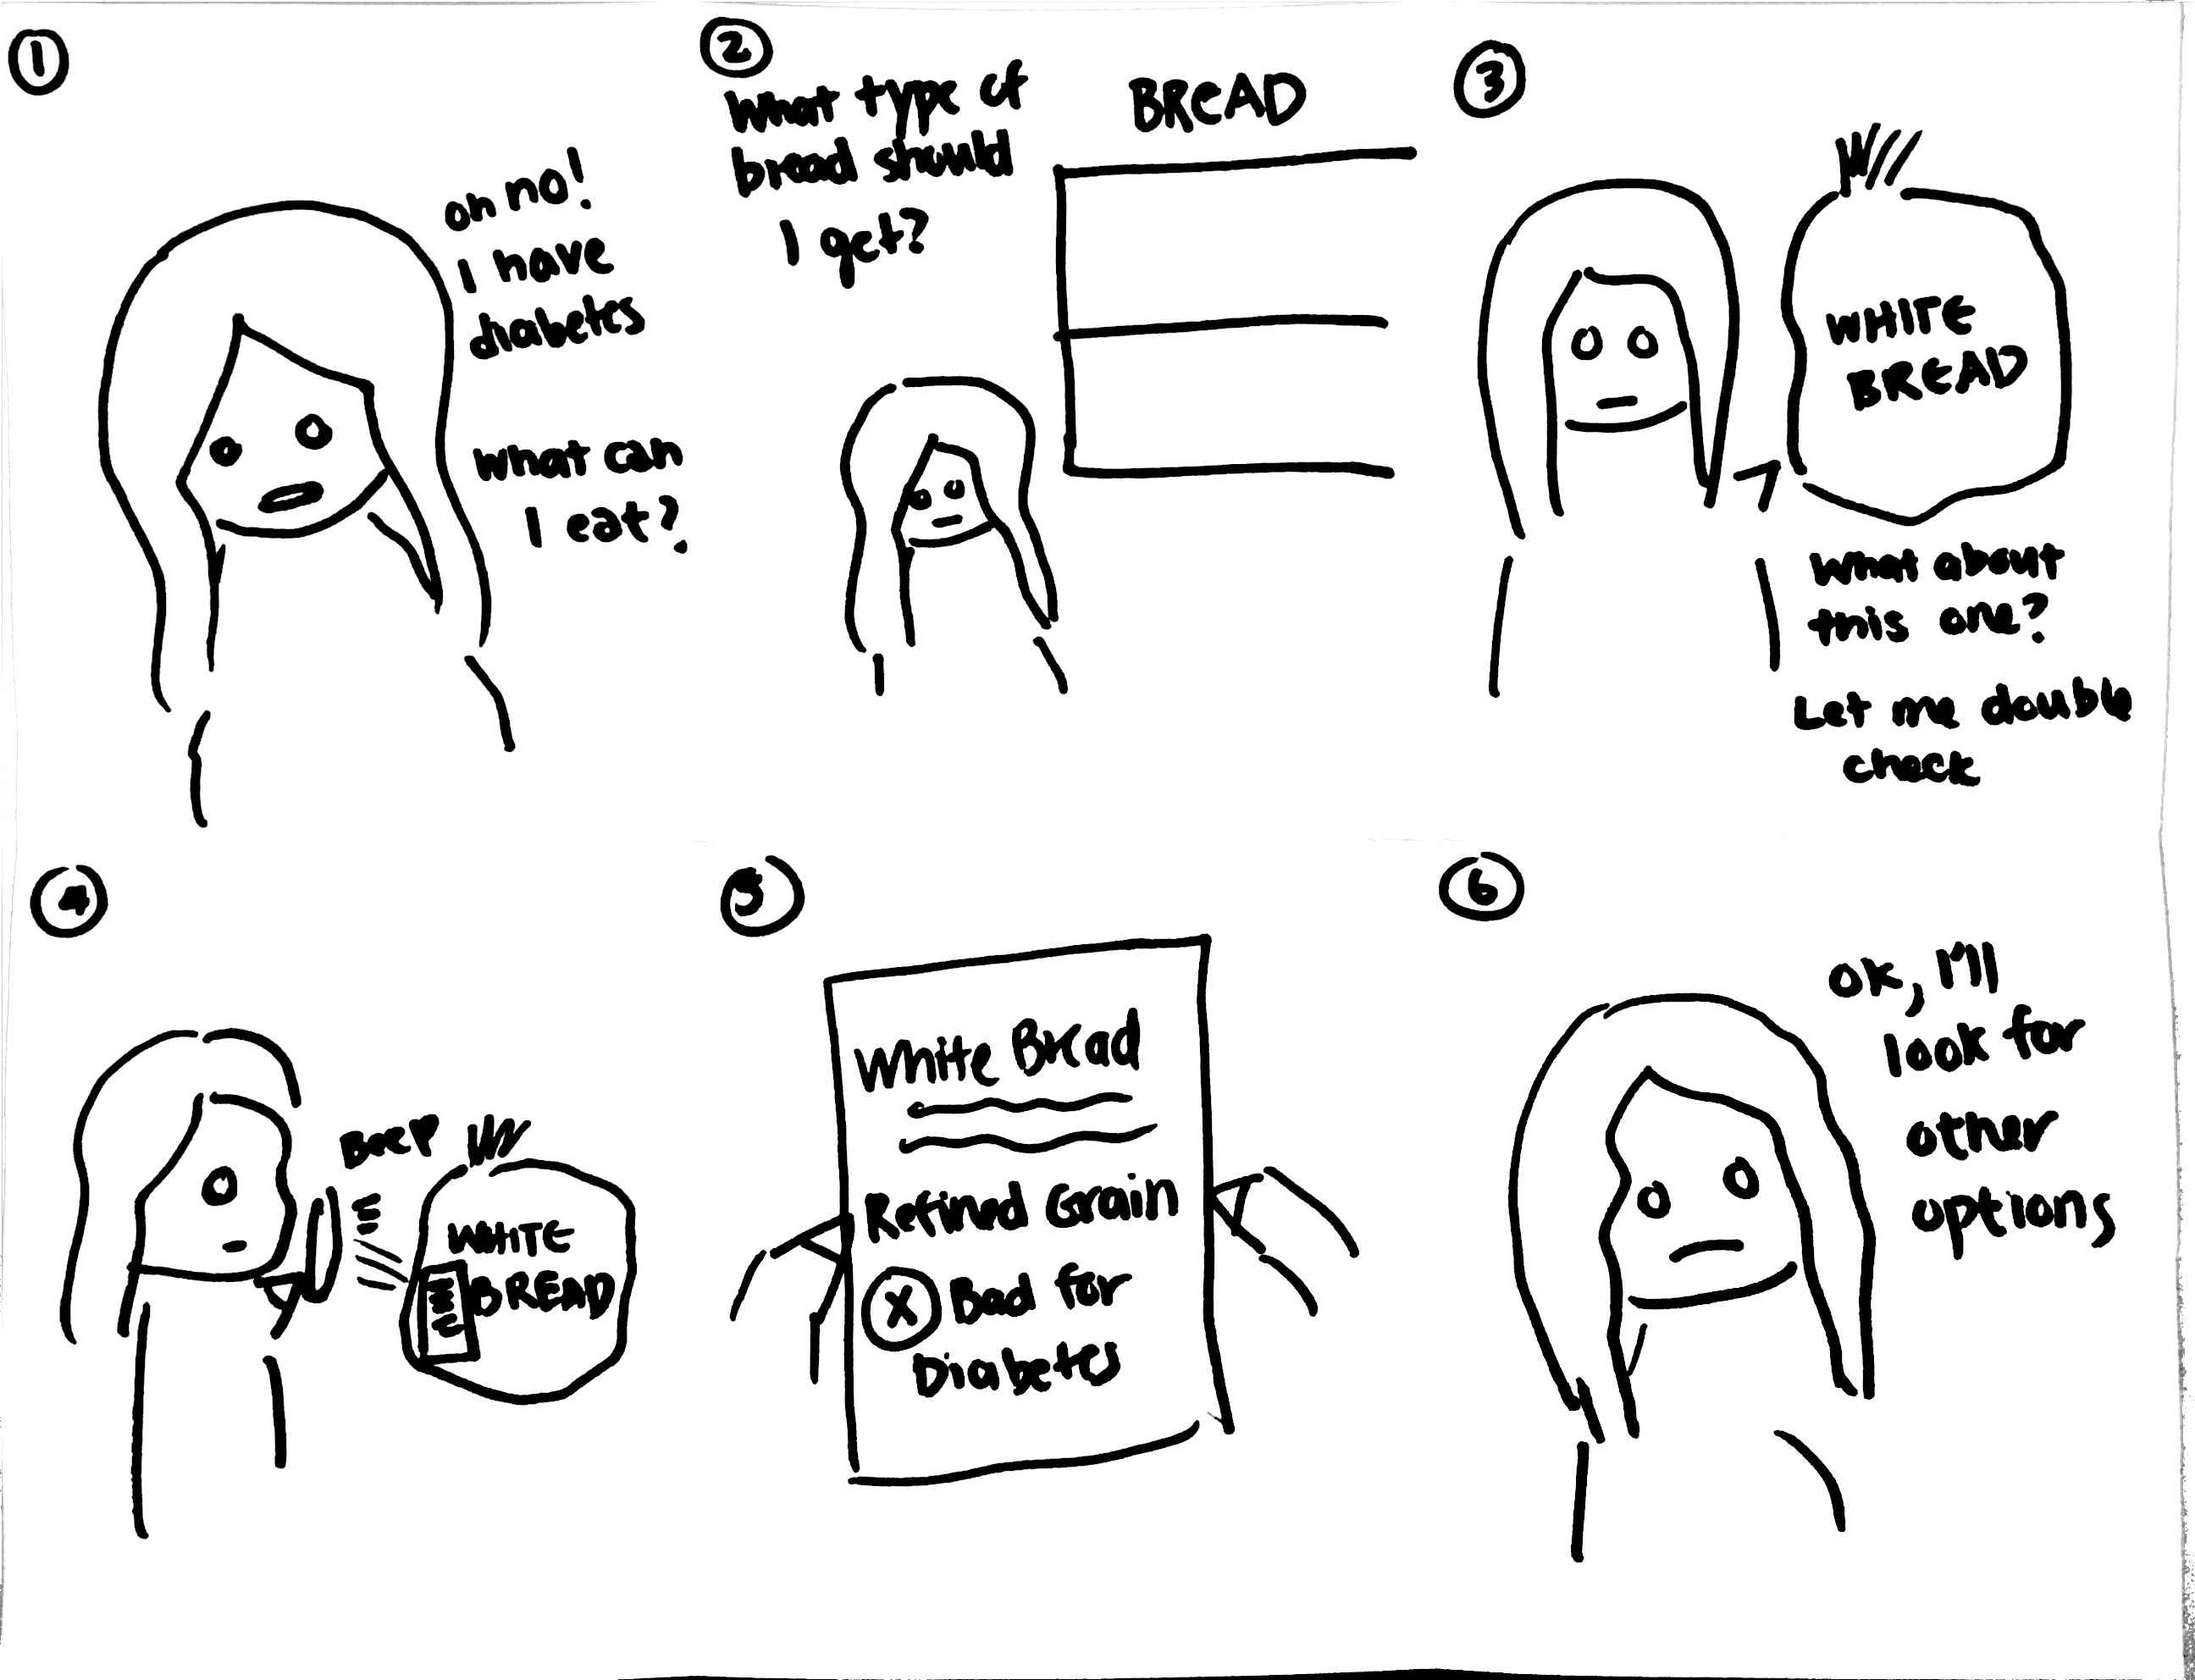 1
oh no!
I have
diabetes
What can
I eat?
2
What type of
bread should
I get?
BREAD
3
WHITE
BREAD
What about
this one?
Let me double
check
4
BEEP
WHITE
BREAD
5
White Bread
Refined Grain
X Bad for
Diabetes
6
OK, I'll
look for
other
options